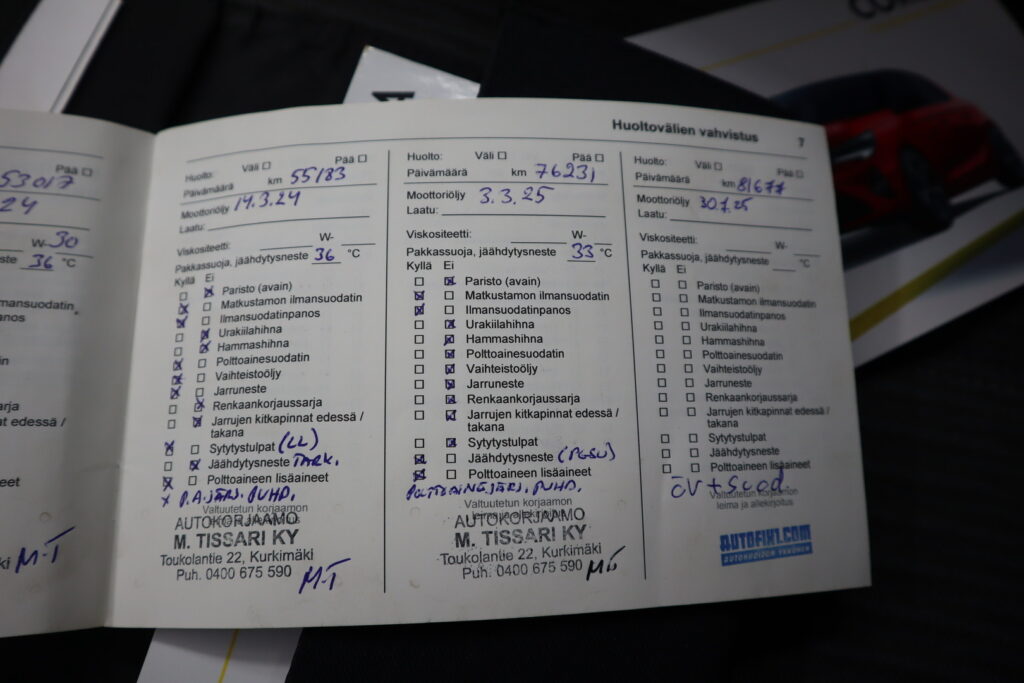 Huoltovälien vahvistus 7
53017
24
W-30
36 °C
Huolto: Väli Pää
Päivämäärä km 55183
Moottoriöljy 14.3.24
Laatu:
Viskositeetti: W-
Pakkassuoja, jäähdytysneste 36 °C
Kyllä Ei
Paristo (avain)
Matkustamon ilmansuodatin
Ilmansuodatinpanos
Urakiilahihna
Hammashihna
Polttoainesuodatin
Vaihteistoöljy
Jarruneste
Renkaankorjaussarja
Jarrujen kitkapinnat edessä /
takana
Sytytystulpat (LL)
Jäähdytysneste TARK.
Polttoaineen lisäaineet
x P.A.JÄRJ. PUHD.
AUTOKORJAAMO
M. TISSARI KY
Toukolantie 22, Kurkimäki
Puh. 0400 675 590 M-T
Huolto: Väli Pää
Päivämäärä km 76231
Moottoriöljy 3.3.25
Laatu:
Viskositeetti: W-
Pakkassuoja, jäähdytysneste 33 °C
Kyllä Ei
Paristo (avain)
Matkustamon ilmansuodatin
Ilmansuodatinpanos
Urakiilahihna
Hammashihna
Polttoainesuodatin
Vaihteistoöljy
Jarruneste
Renkaankorjaussarja
Jarrujen kitkapinnat edessä /
takana
Sytytystulpat
Jäähdytysneste
Polttoaineen lisäaineet
POLTTOAINEJÄRJ. PUHD.
Valtuutetun korjaamon
leima ja allekirjoitus
AUTOKORJAAMO
M. TISSARI KY
Toukolantie 22, Kurkimäki
Puh. 0400 675 590
Huolto: Väli Pää
Päivämäärä km 81677
Moottoriöljy 30.7.25
Laatu:
Viskositeetti: W-
Pakkassuoja, jäähdytysneste °C
Kyllä Ei
Paristo (avain)
Matkustamon ilmansuodatin
Ilmansuodatinpanos
Urakiilahihna
Hammashihna
Polttoainesuodatin
Vaihteistoöljy
Jarruneste
Renkaankorjaussarja
Jarrujen kitkapinnat edessä /
takana
Sytytystulpat
Jäähdytysneste
Polttoaineen lisäaineet
ÖV + Suod.
Valtuutetun korjaamon
leima ja allekirjoitus
AUTOFIX1.COM